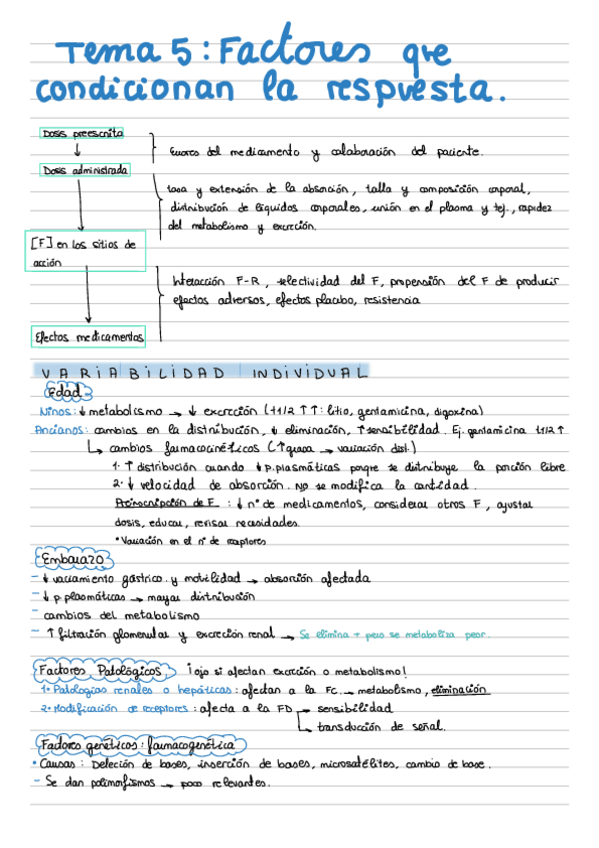 Tema 5: Factores que
condicionan la respuesta.
Dosis preescrita
Errores del medicamento y colaboración del paciente.
Dosis administrada
tasa y extensión de la absorción, talla y composición corporal,
distribución de líquidos corporales, unión en el plasma y tej., rapidez
del metabolismo y excreción.
[F] en los sitios de
acción
Interacción F-R, selectividad del F, propensión del F de producir
efectos adversos, efectos placebo, resistencia
Efectos medicamentos
VARIABILIDAD INDIVIDUAL
Edad
Niños: ↓ metabolismo → ↓ excreción (t1/2 ↑↑: litio, gentamicina, digoxina)
Ancianos: cambios en la distribución, ↓ eliminación, ↑ sensibilidad. Ej. gentamicina t1/2 ↑
↳ cambios farmacocinéticos (↑ grasa → variación dist.)
1. ↑ distribución cuando ↓ p.plasmáticas porque se distribuye la porción libre
2. ↓ velocidad de absorción. No se modifica la cantidad.
Preinscripción de F : ↓ nº de medicamentos, considerar otros F, ajustar
dosis, educar, revisar necesidades.
• Variación en el nº de receptores
Embarazo
- ↓ vaciamiento gástrico y motilidad → absorción afectada
- ↓ p.plasmáticas → mayor distribución
- cambios del metabolismo
- ↑ filtración glomerular y excreción renal → Se elimina + pero se metaboliza peor.
Factores Patológicos ¡ojo si afectan excreción o metabolismo!
1. Patologías renales o hepáticas: afectan a la FC → metabolismo, eliminación
2. Modificación de receptores: afecta a la FD → sensibilidad
↳ transducción de señal.
Factores genéticos: farmacogenética
• Causas: Deleción de bases, inserción de bases, microsatélites, cambio de base.
- Se dan polimorfismos → poco relevantes.